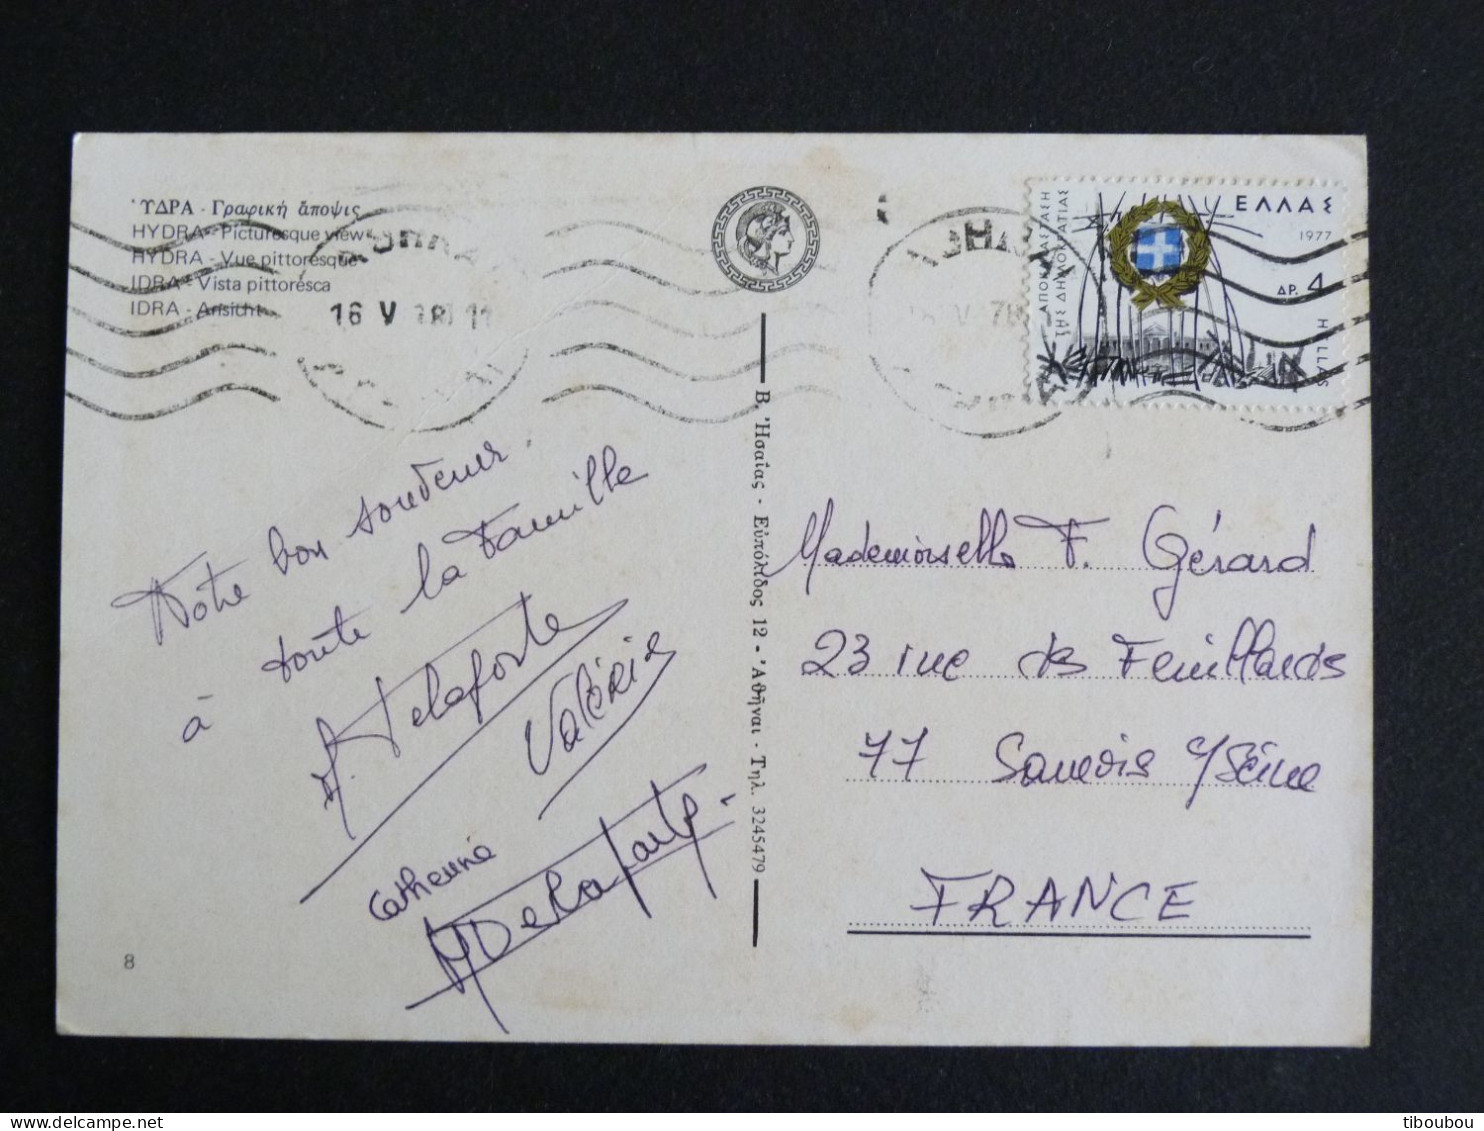 ὝΔΡΑ - Γραφική ἄποψις
HYDRA - Picturesque view
HYDRA - Vue pittoresque
IDRA - Vista pittoresca
IDRA - Ansicht
16 V 78 11
ΕΛΛΑΣ
1977
ΔΡ. 4
HELLAS
ΑΠΟΚΑΤΑΣΤΑΣΗ
ΤΗΣ ΔΗΜΟΚΡΑΤΙΑΣ
Notre bon souvenir
à toute la Famille
Delaporte
Valérie
Catherine
Delaporte
Β. Ἡσαΐας - Εὐπόλιδος 12 - Ἀθῆναι - Τηλ. 3245479
Mademoiselle F. Gérard
23 rue des Feuillards
77 Samois s/Seine
FRANCE
8
tiboubou